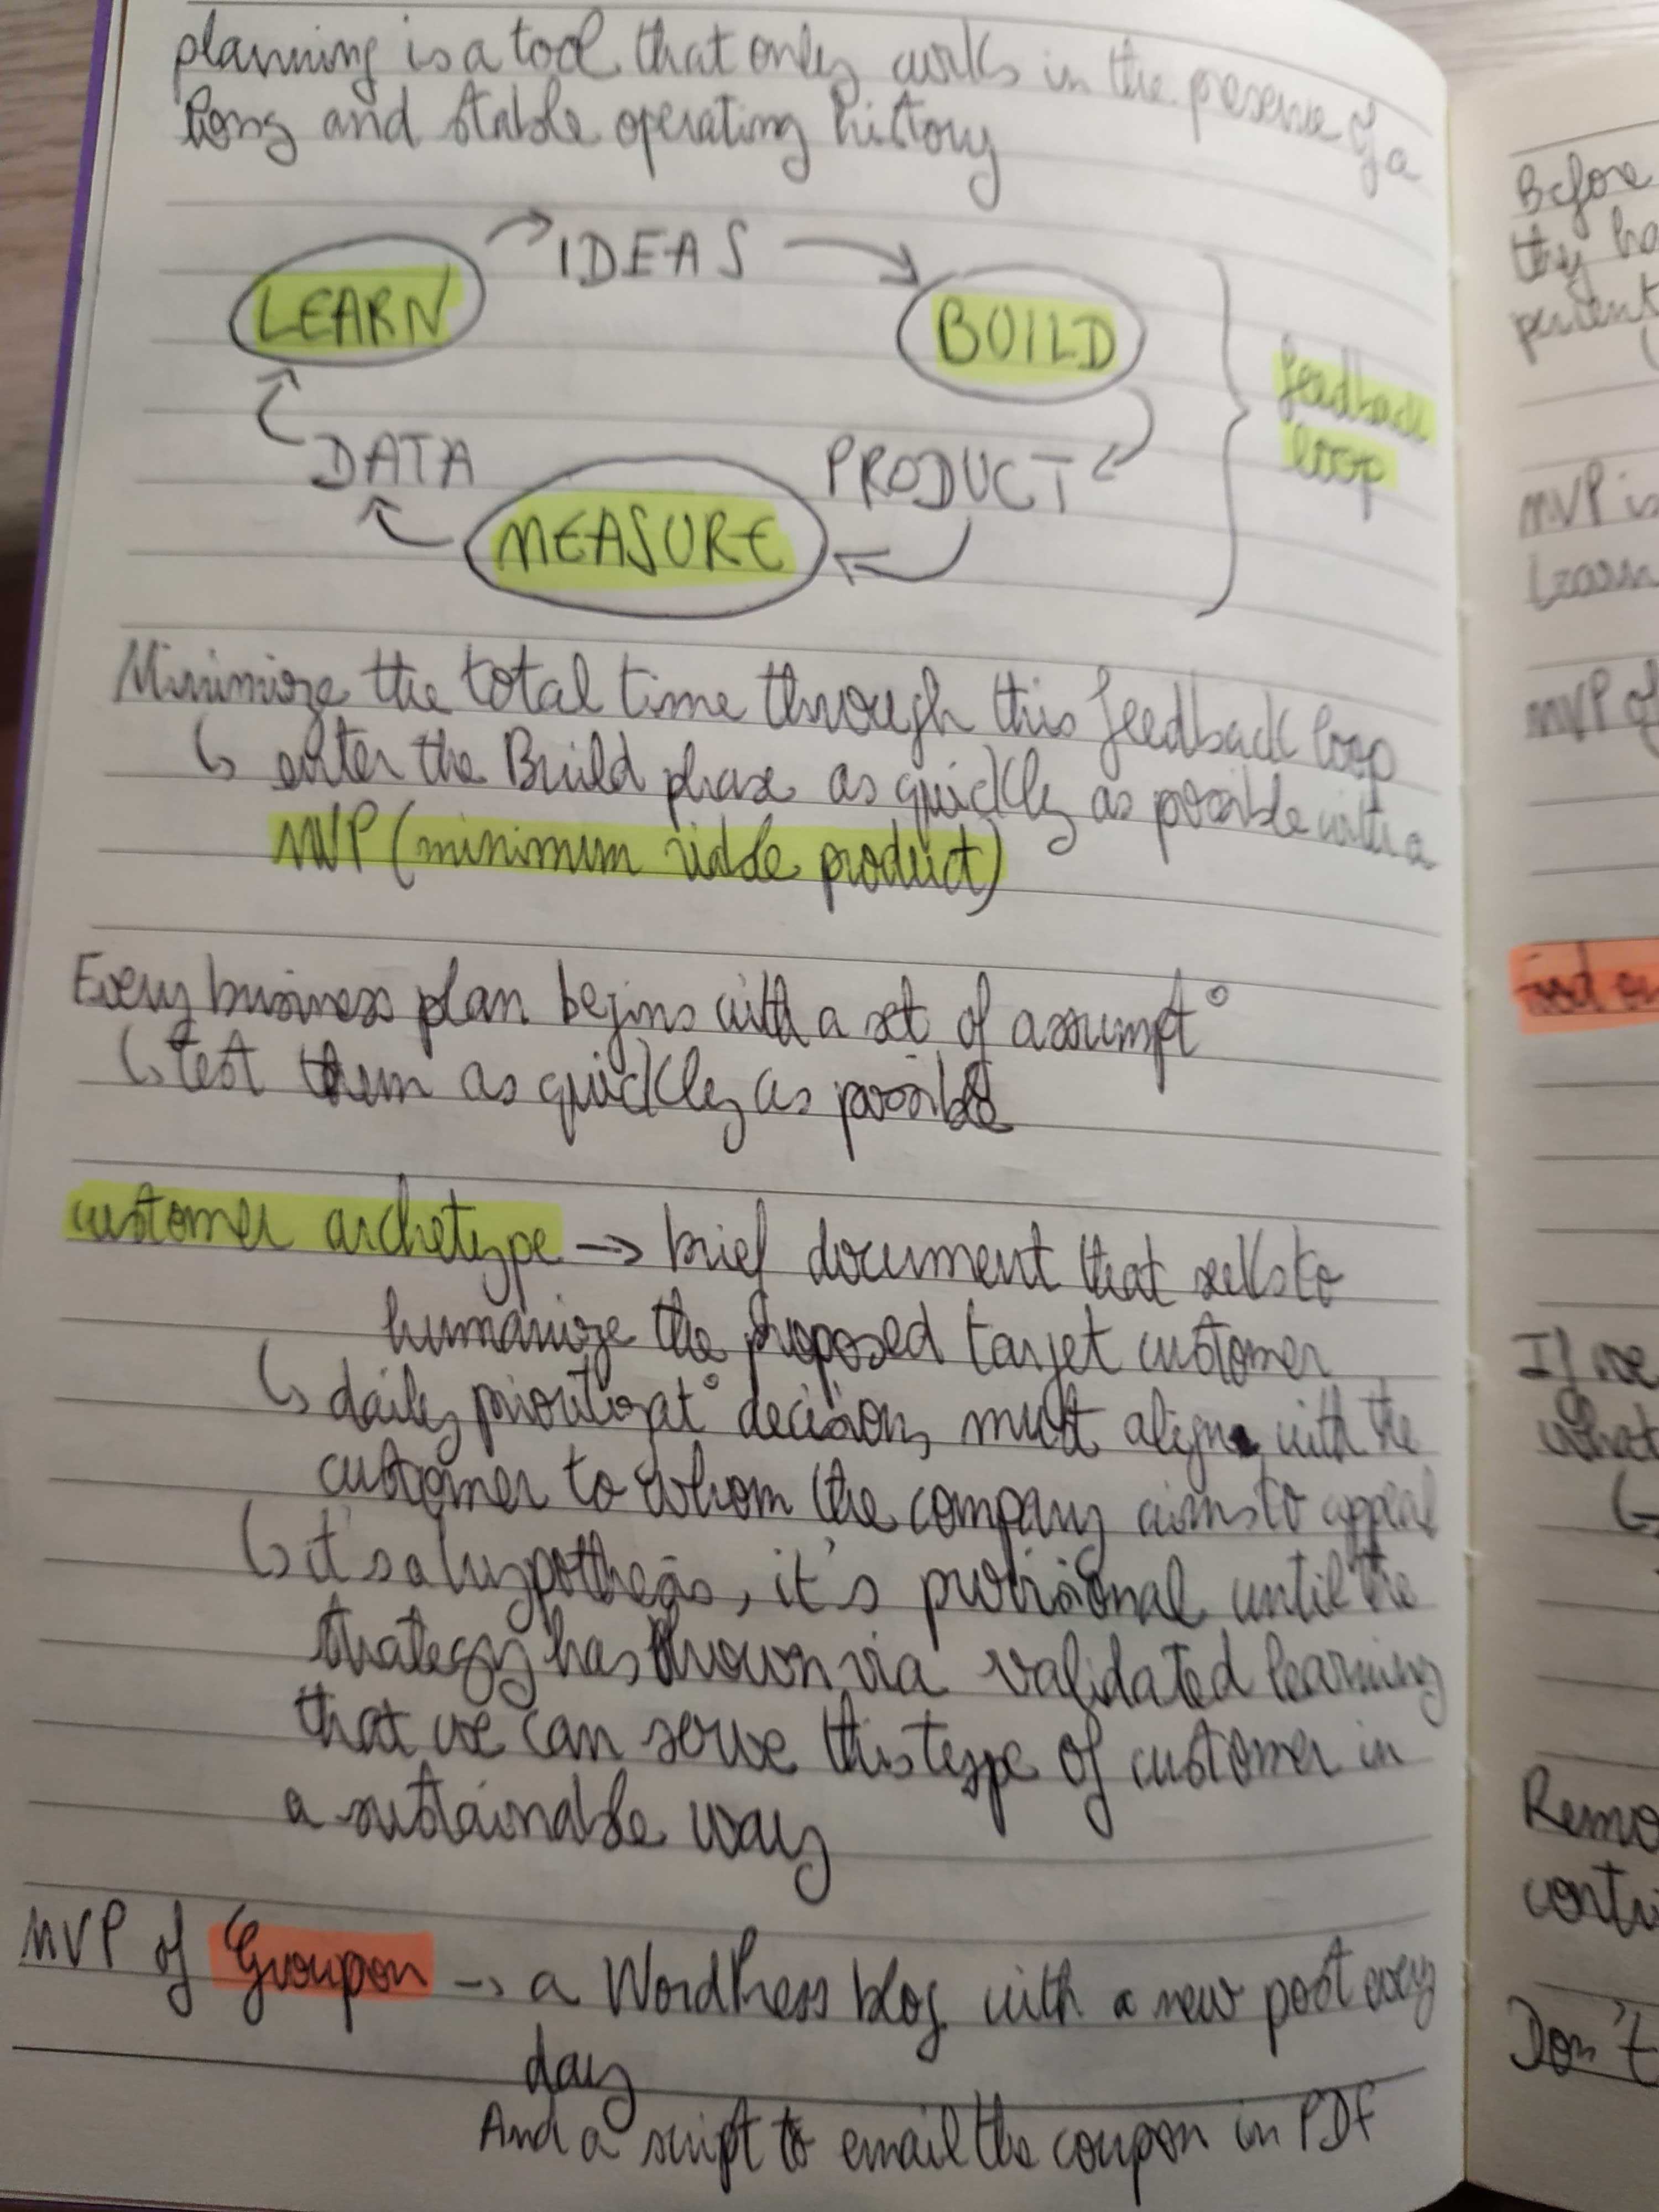 planning is a tool that only works in the presence of a
long and stable operating history
LEARN
IDEAS
BUILD
DATA
PRODUCT
MEASURE
feedback
loop
Minimize the total time through this feedback loop
enter the Build phase as quickly as possible with a
MVP (minimum viable product)
Every business plan begins with a set of assumpt°
test them as quickly as possible
customer archetype → brief document that seeks to
humanize the proposed target customer
daily prioritizat° decision, must align with the
customer to whom the company aims to appeal
it's a hypothesis, it's provisional until the
strategy has shown via validated learning
that we can serve this type of customer in
a sustainable way
MVP of Groupon → a WordPress blog with a new post every
day
And a script to email the coupon in PDF
Before
they ha
MVP is
Learn
MVP of
If we
what
Remo
contr
Don't